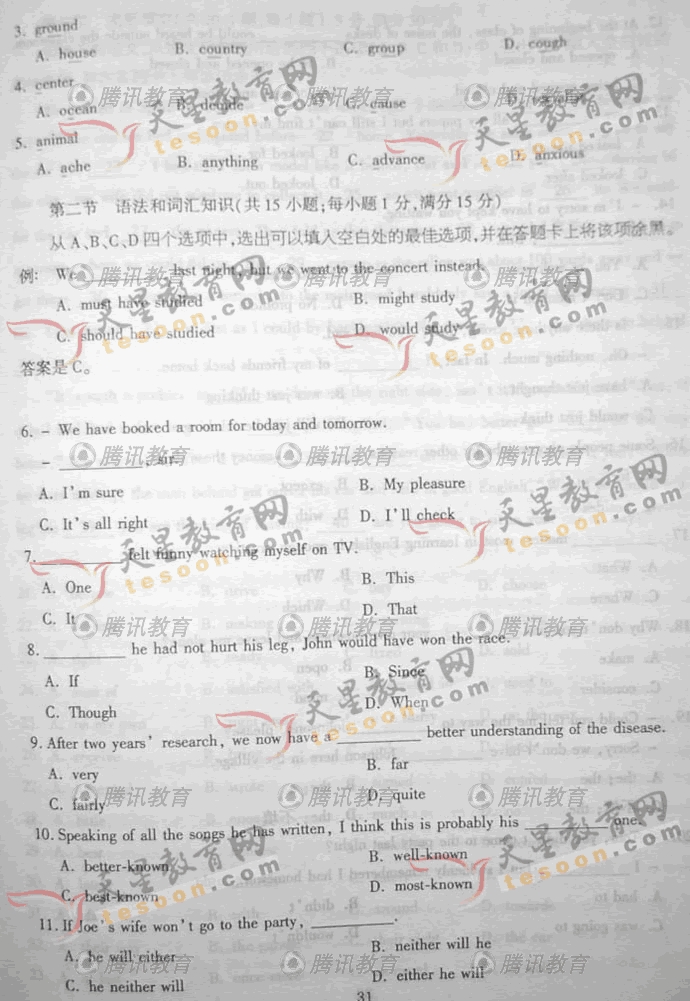 3. ground
A. house B. country C. group D. cough
4. center
A. ocean B. decide C. cause D.
5. animal
A. ache B. anything C. advance D. anxious
第二节 语法和词汇知识(共15小题;每小题1分,满分15分)
从A、B、C、D四个选项中,选出可以填入空白处的最佳选项,并在答题卡上将该项涂黑。
例: We ________ last night, but we went to the concert instead.
A. must have studied B. might study
C. should have studied D. would study
答案是C。
6. - We have booked a room for today and tomorrow.
- ________, sir.
A. I'm sure B. My pleasure
C. It's all right D. I'll check
7. ________ felt funny watching myself on TV.
A. One B. This
C. It D. That
8. ________ he had not hurt his leg, John would have won the race.
A. If B. Since
C. Though D. When
9. After two years' research, we now have a ________ better understanding of the disease.
A. very B. far
C. fairly D. quite
10. Speaking of all the songs he has written, I think this is probably his ________ one.
A. better-known B. well-known
C. best-known D. most-known
11. If Joe's wife won't go to the party, ________.
A. he will either B. neither will he
C. he neither will D. either he will
31
腾讯教育
天星教育网
tesoon.com